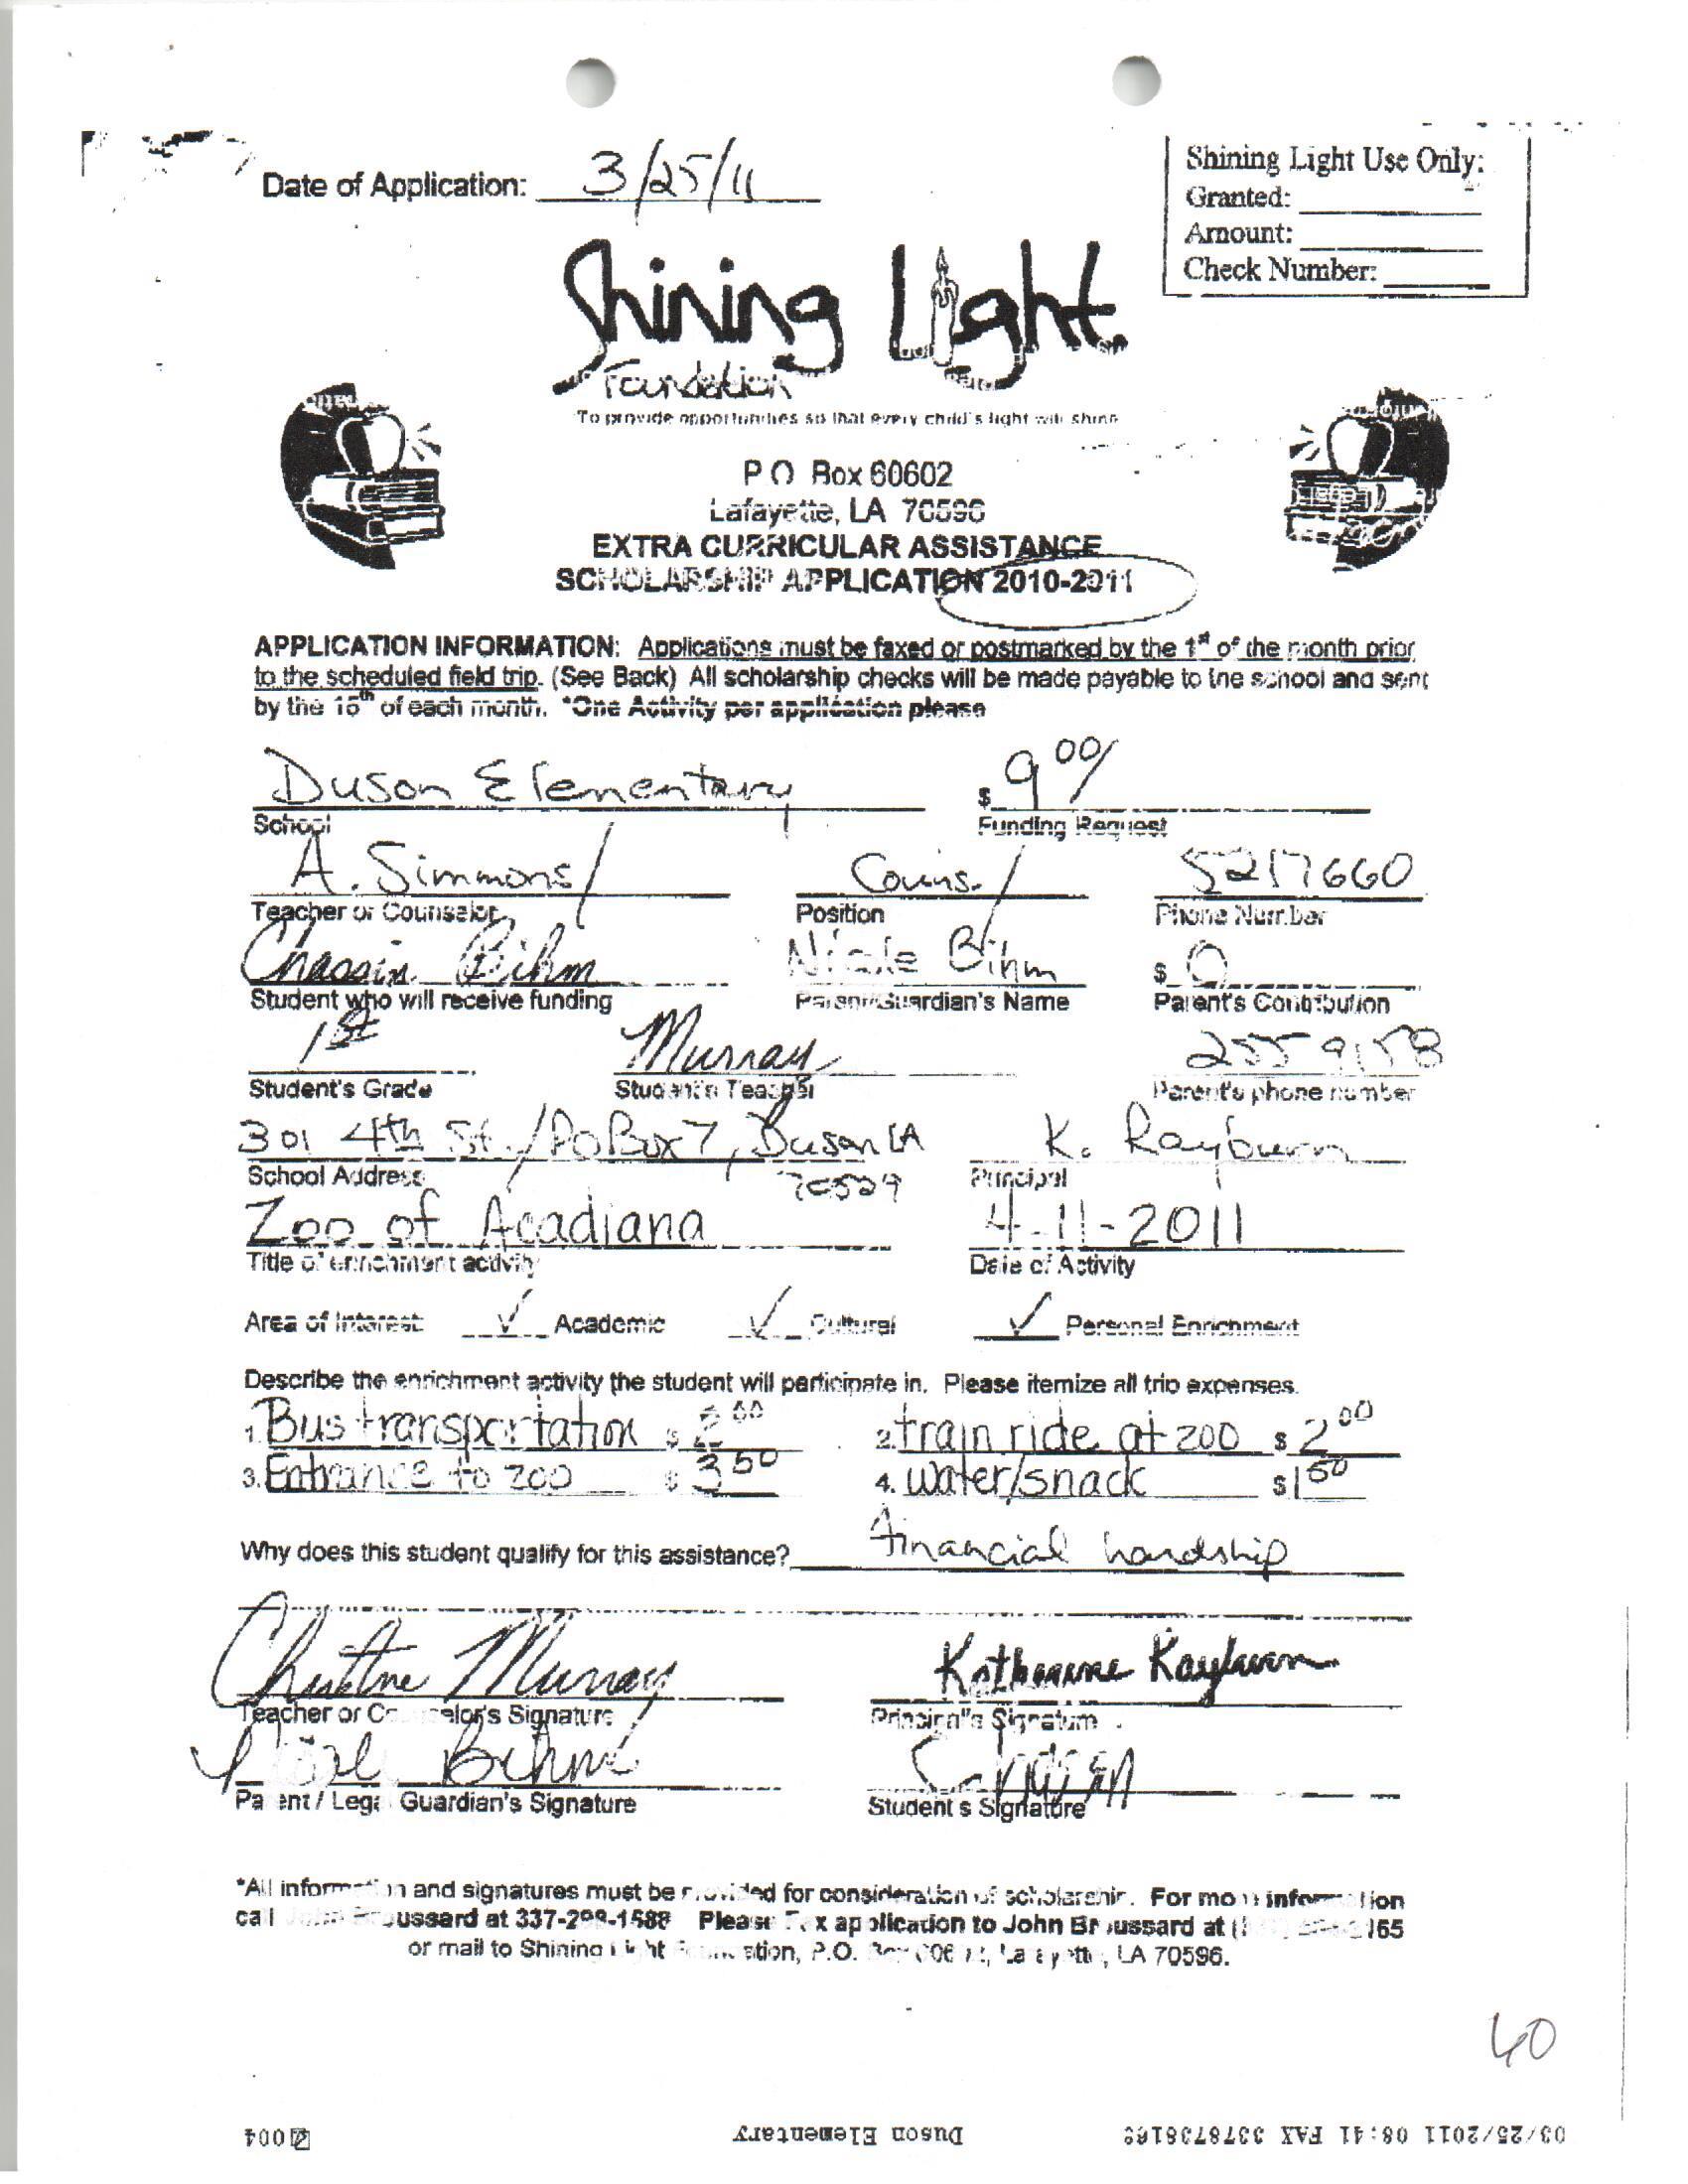 Date of Application: 3/25/11
Shining Light Use Only:
Granted:
Amount:
Check Number:
Shining Light
Foundation
To provide opportunities so that every child's light will shine
P O Box 60602
Lafayette, LA 70596
EXTRA CURRICULAR ASSISTANCE
SCHOLARSHIP APPLICATION 2010-2011
APPLICATION INFORMATION: Applications must be faxed or postmarked by the 1st of the month prior
to the scheduled field trip. (See Back) All scholarship checks will be made payable to the school and sent
by the 15th of each month. *One Activity per application please
Duson Elementary $ 9 00/
School Funding Request
A. Simmons/ Couns./ 5217660
Teacher or Counselor Position Phone Number
Chassin Bihm Nicole Bihm $ 0
Student who will receive funding Parent/Guardian's Name Parent's Contribution
1st Murray 255 9158
Student's Grade Student's Teacher Parent's phone number
301 4th St./PO Box 7, Duson LA K. Rayburn
School Address 70529 Principal
Zoo of Acadiana 4-11-2011
Title of enrichment activity Date of Activity
Area of Interest: ✓ Academic ✓ Cultural ✓ Personal Enrichment
Describe the enrichment activity the student will participate in. Please itemize all trip expenses.
1. Bus transportation $ 2 00 2. train ride at zoo $ 2 00
3. Entrance to zoo $ 3 50 4. water/snack $ 1 50
Why does this student qualify for this assistance? financial hardship
Christine Murray Katherine Rayburn
Teacher or Counselor's Signature Principal's Signature
Nicole Bihm
Parent / Legal Guardian's Signature Student's Signature
*All information and signatures must be provided for consideration of scholarship. For more information
call John Broussard at 337-298-1588 Please Fax application to John Broussard at
or mail to Shining Light Foundation, P.O. Box 60602, Lafayette, LA 70596.
40
03/25/2011 08:41 FAX 3378738169 Duson Elementary 004